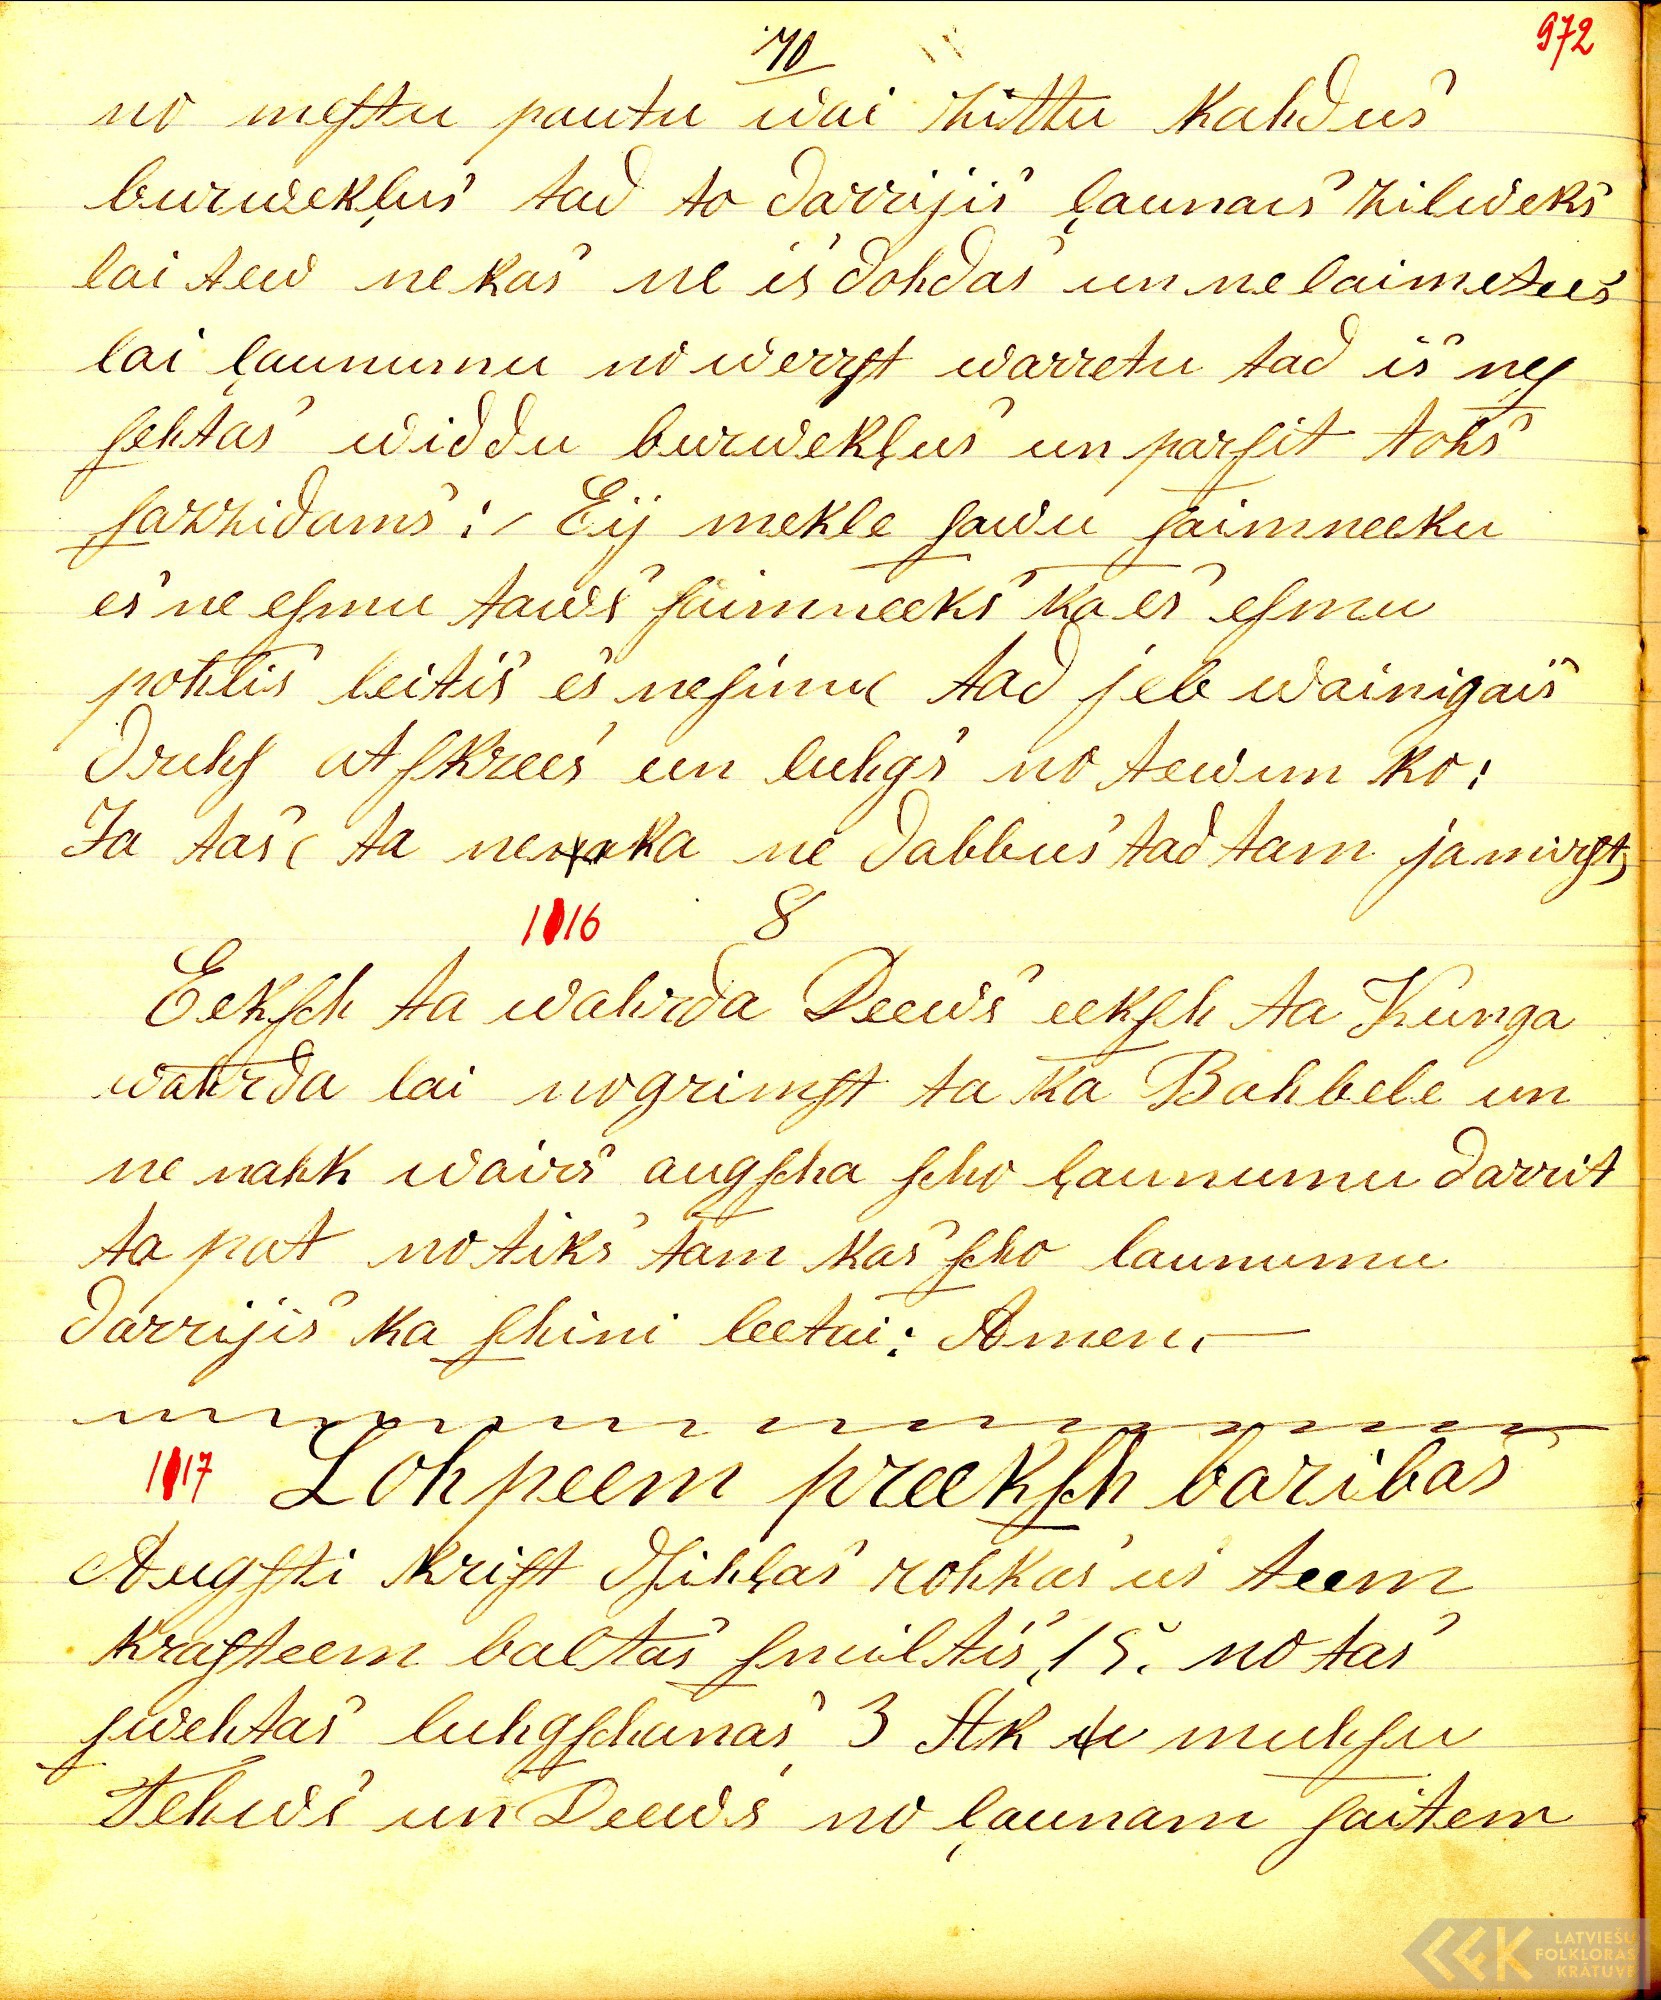 70
972
no mestu pautu wai zittu kahdus
burwekļus tad to darrijis ļaunais zilweks
lai tew nekas ne isdohdas un nelaimetees
lai ļaunumu no werrst warretu tad is neſ
ſehtas widdu burwekļus un parſit tohs
ſazzidams :/ Eij mekle ſawu ſaimneeku
es ne eſmu taws ſaimneeks ka es eſmu
pohlis leitis es neſinu tad jeb wainigais
druhſ atſkrees un luhgs no tewim ko:
Ja tas ta ne ka ne dabbus tad tam jamirſt
1016 8
Eekſch ta wahrda Deews eekſch ta Kunga
wahrda lai nogrimſt ta ka Bahbele un
ne nahk wairs augſcha ſcho ļaunumu darrit
ta pat notiks tam kas ſcho launumu
darrijis ka ſchini leetai: Amen.
1017 Lohpeem preekſch baribas
Augſti kriſt dſihļas rohkas us teem
kraſteem baltas ſmiltis, 15. no tas
ſwehtas luhgſchanas 3 Stk muhſu
Tehws un Deews no ļaunam ſaitem
LATVIEŠU
FOLKLORAS
KRĀTUVE